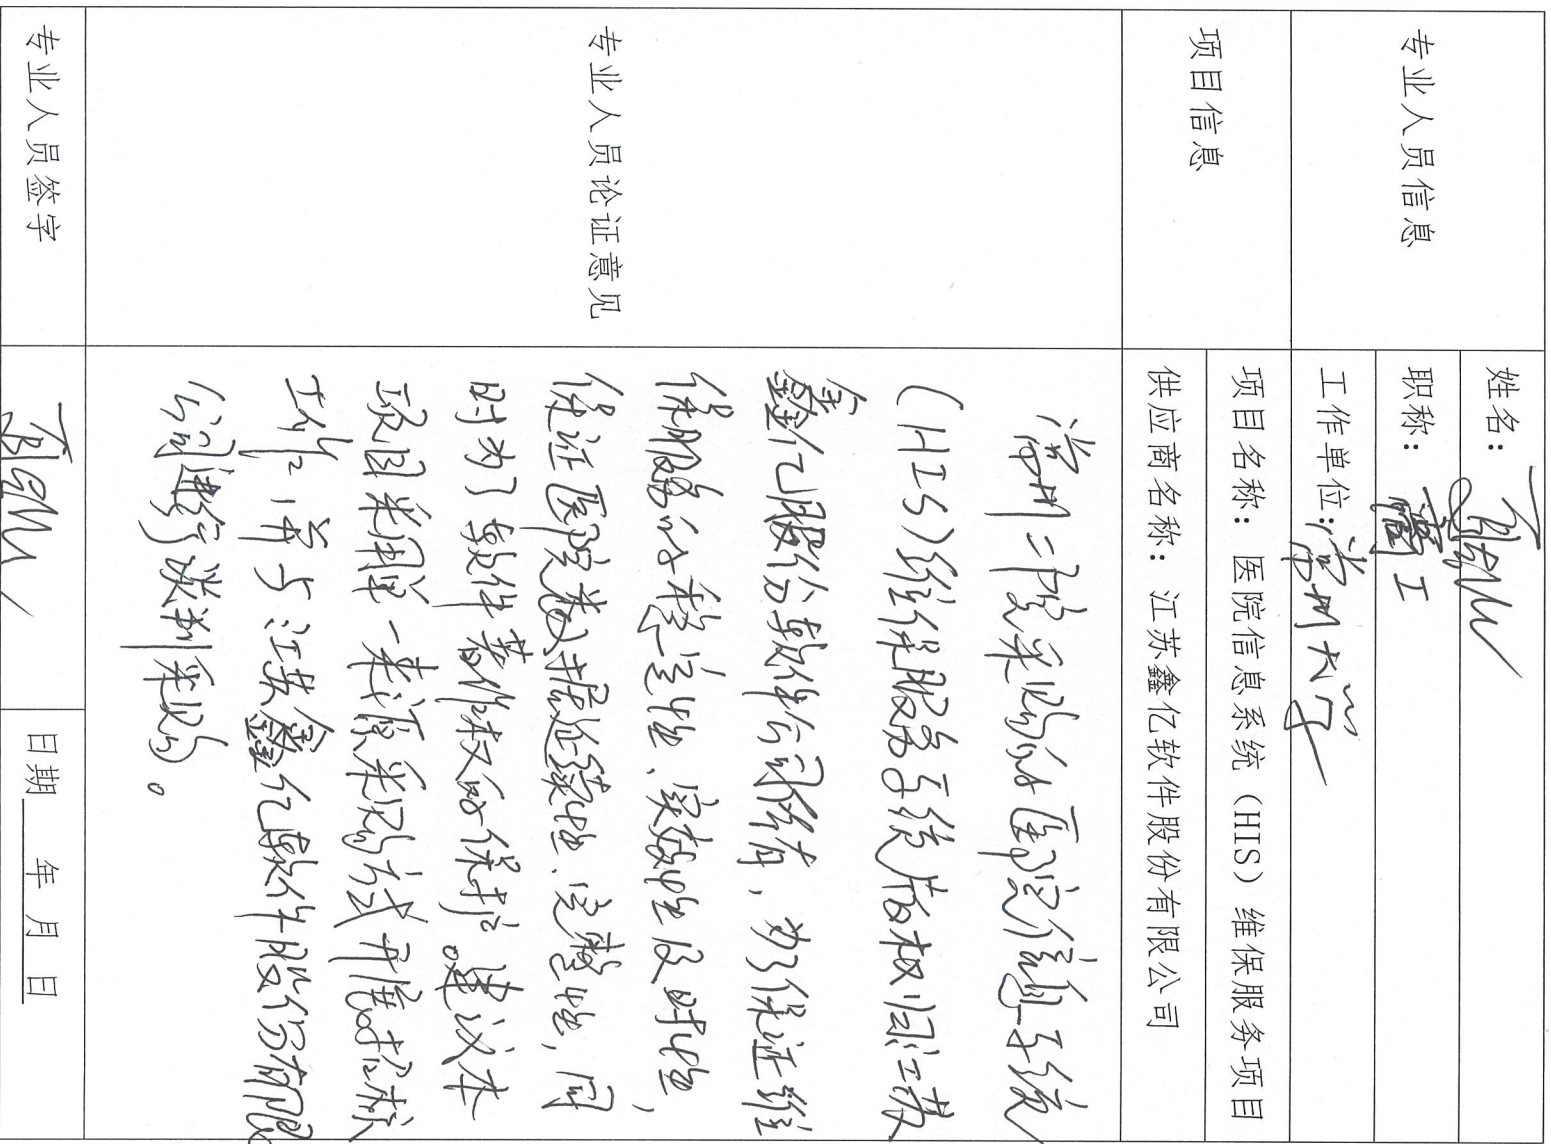 专业人员信息
姓名：
职称：高工
工作单位：常州大学
项目信息
项目名称：医院信息系统（HIS）维保服务项目
供应商名称：江苏鑫亿软件股份有限公司
专业人员论证意见
常州二院采购的医院信息系统
（HIS）维保服务系统著作权归江苏
鑫亿股份软件公司所有，为了保证维
保服务的稳定性、实效性及时性，
保证医院数据连续性、完整性，同
时为了软件著作权的保护。建议本
项目采用单一来源采购方式开展招标
工作，并与江苏鑫亿软件股份有限
公司进行谈判采购。
专业人员签字
日期 年 月 日